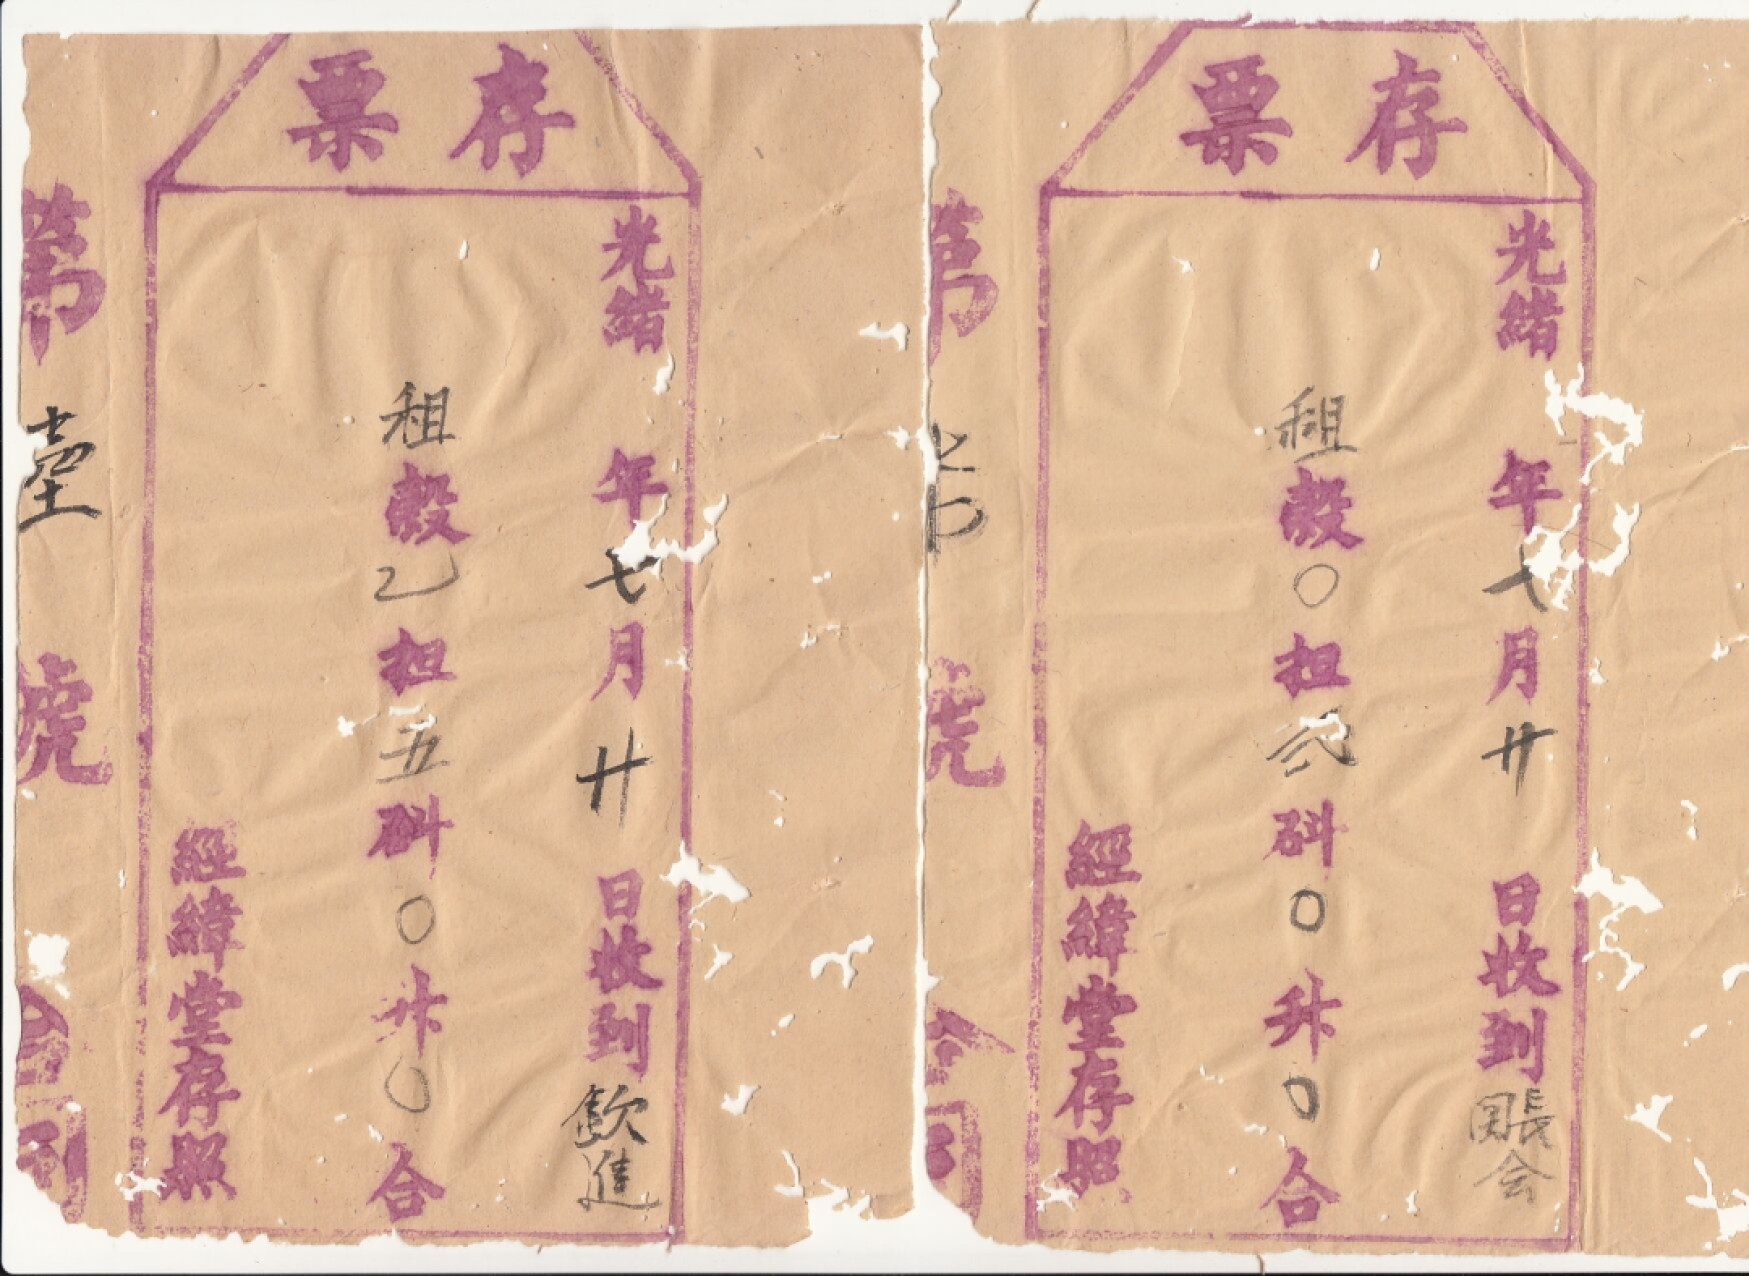 存票
光緒 年七月廿日收到欽進
租穀乙担五㪷〇升〇合
經緯堂存照
第壹號
合同
存票
光緒 年七月廿日收到
租穀〇担弍㪷〇升〇合
經緯堂存照
第 號
合同